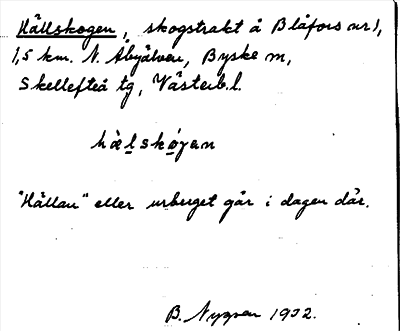 Hällskogen, skogstrakt å Blåfors nr 1,
1,5 km. N. Åbyälven, Byske sn,
Skellefteå tg, Västerb.l.
hälskógan
"Hällan" eller urberget går i dagen där.
B. Nygren 1932.